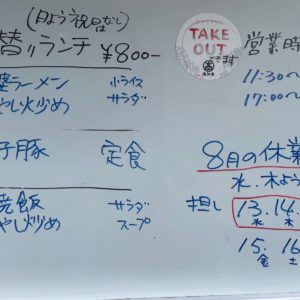 (月よう祝日はなし)
替リランチ ¥800-
ラーメン 小ライス
やし炒め サラダ
子豚 定食
焼飯 サラダ
やし炒め スープ
TAKE
OUT
できます
営業時
11:30~
17:00~
8月の休業
水.木よう
担し 13.14.
水 木
15. 16
金 土